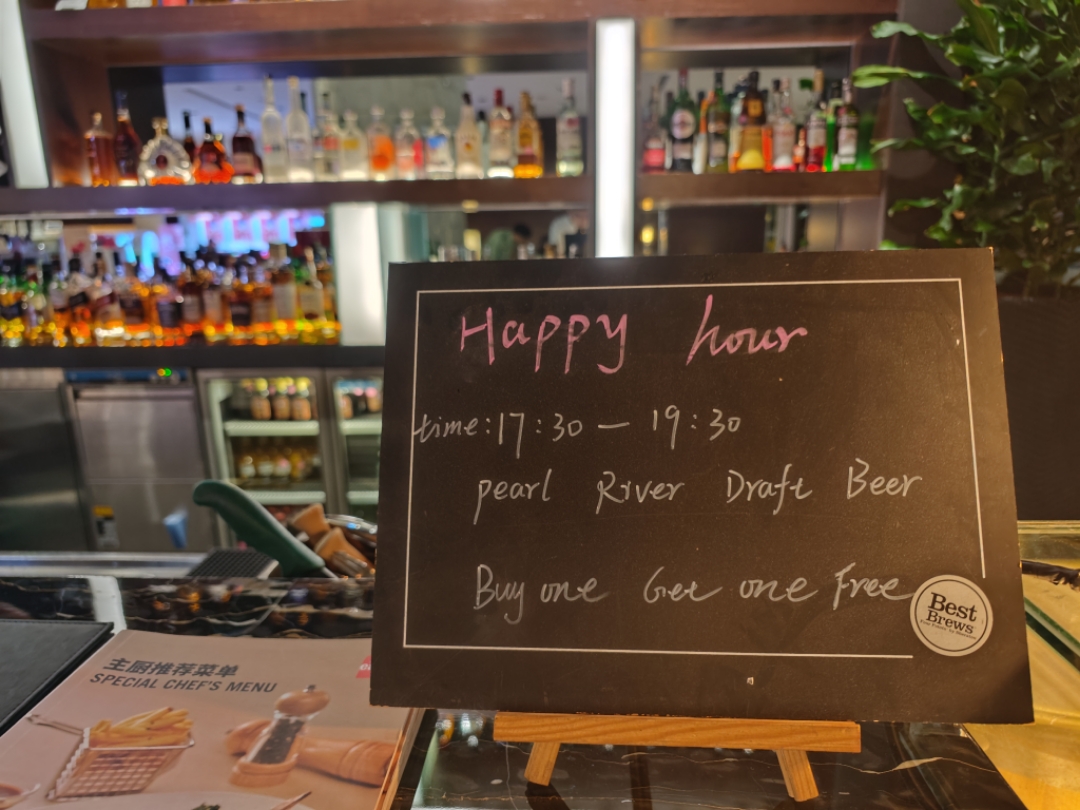 Happy hour
time:17:30 — 19:30
pearl River Draft Beer
Buy one Get one Free
Best
Brews
主厨推荐菜单
SPECIAL CHEF'S MENU